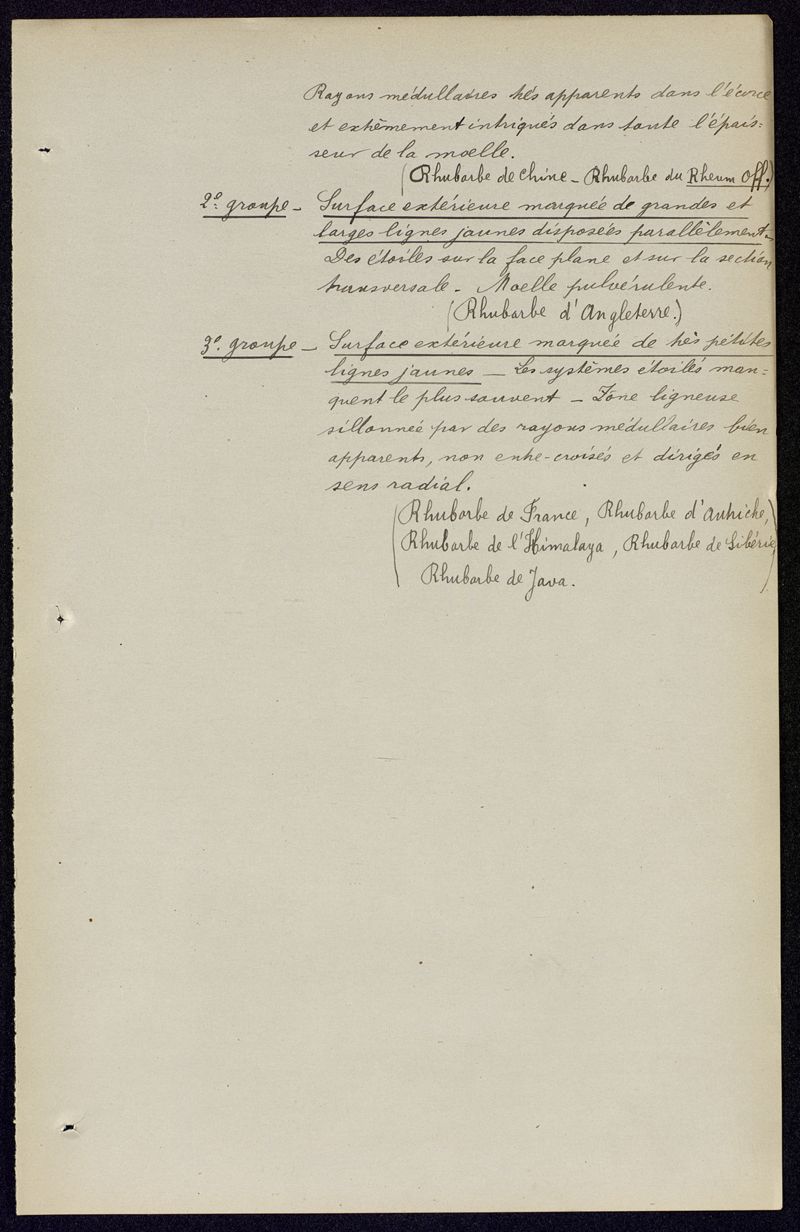 Rayons médullaires très apparents dans l'écorce
et extrêmement intriqués dans toute l'épais=
seur de la moelle.
(Rhubarbe de Chine - Rhubarbe du Rheum Off.)
2e. groupe - Surface extérieure marquée de grandes et
larges lignes jaunes disposées parallèlement -
Des étoiles sur la face plane et sur la section
transversale. - Moelle pulvérulente.
(Rhubarbe d'Angleterre.)
3e. groupe - Surface extérieure marquée de très petites
lignes jaunes - Les systèmes étoilés man=
quent le plus souvent - Zone ligneuse
sillonnée par des rayons médullaires bien
apparents, non entre-croisés et dirigés en
sens radial.
(Rhubarbe de France, Rhubarbe d'Autriche,
Rhubarbe de l'Himalaya, Rhubarbe de Sibérie,
Rhubarbe de Java.)